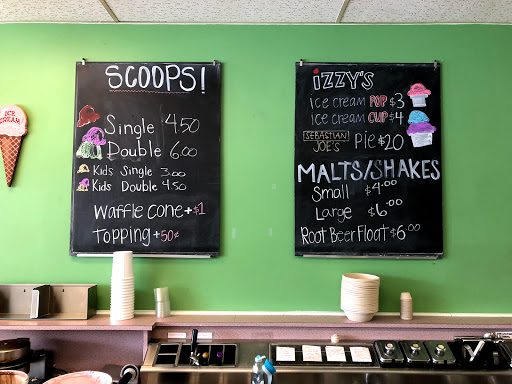 SCOOPS!
Single 4.50
Double 6.00
Kids Single 3.00
Kids Double 4.50
Waffle Cone + $1
Topping + 50¢
ICE CREAM
izzy's
ice cream POP $3
ice cream CUP $4
SEBASTIAN JOE'S Pie $20
MALTS/SHAKES
Small $4.00
Large $6.00
Root Beer Float $6.00